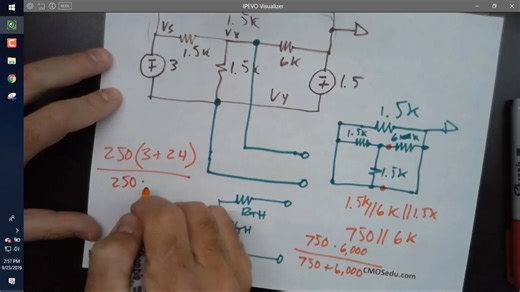 IPEVO Visualizer
1.5K
Vs
Vx
1.5K
6K
∓ 3
1.5K
∓ 1.5
Vy
1.5K
1.5K
1.5K
250(3+24)
250·
RTH
1.5K//6K//1.5K
750//6K
750·6,000
750+6,000
CMOSedu.com
2:57 PM
Monday
9/23/2019